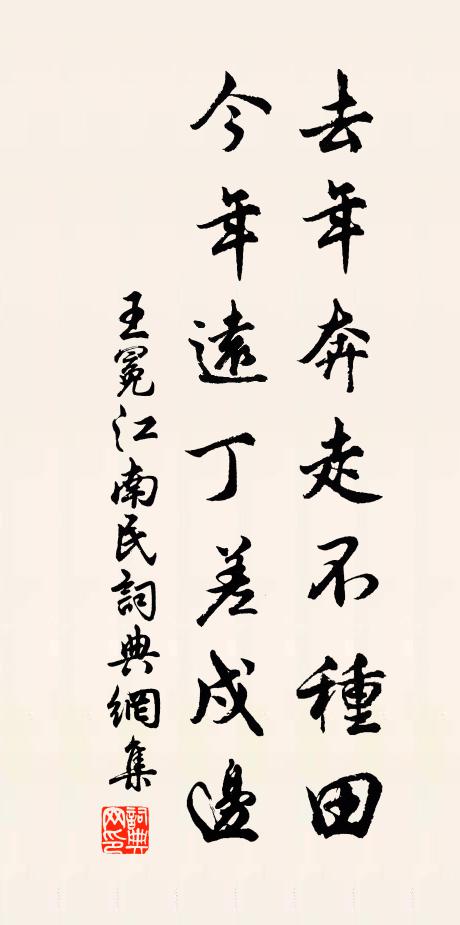 去年奔走不種田
今年遠丁差戍邊
王冕江南民詞典網集
詞典網印